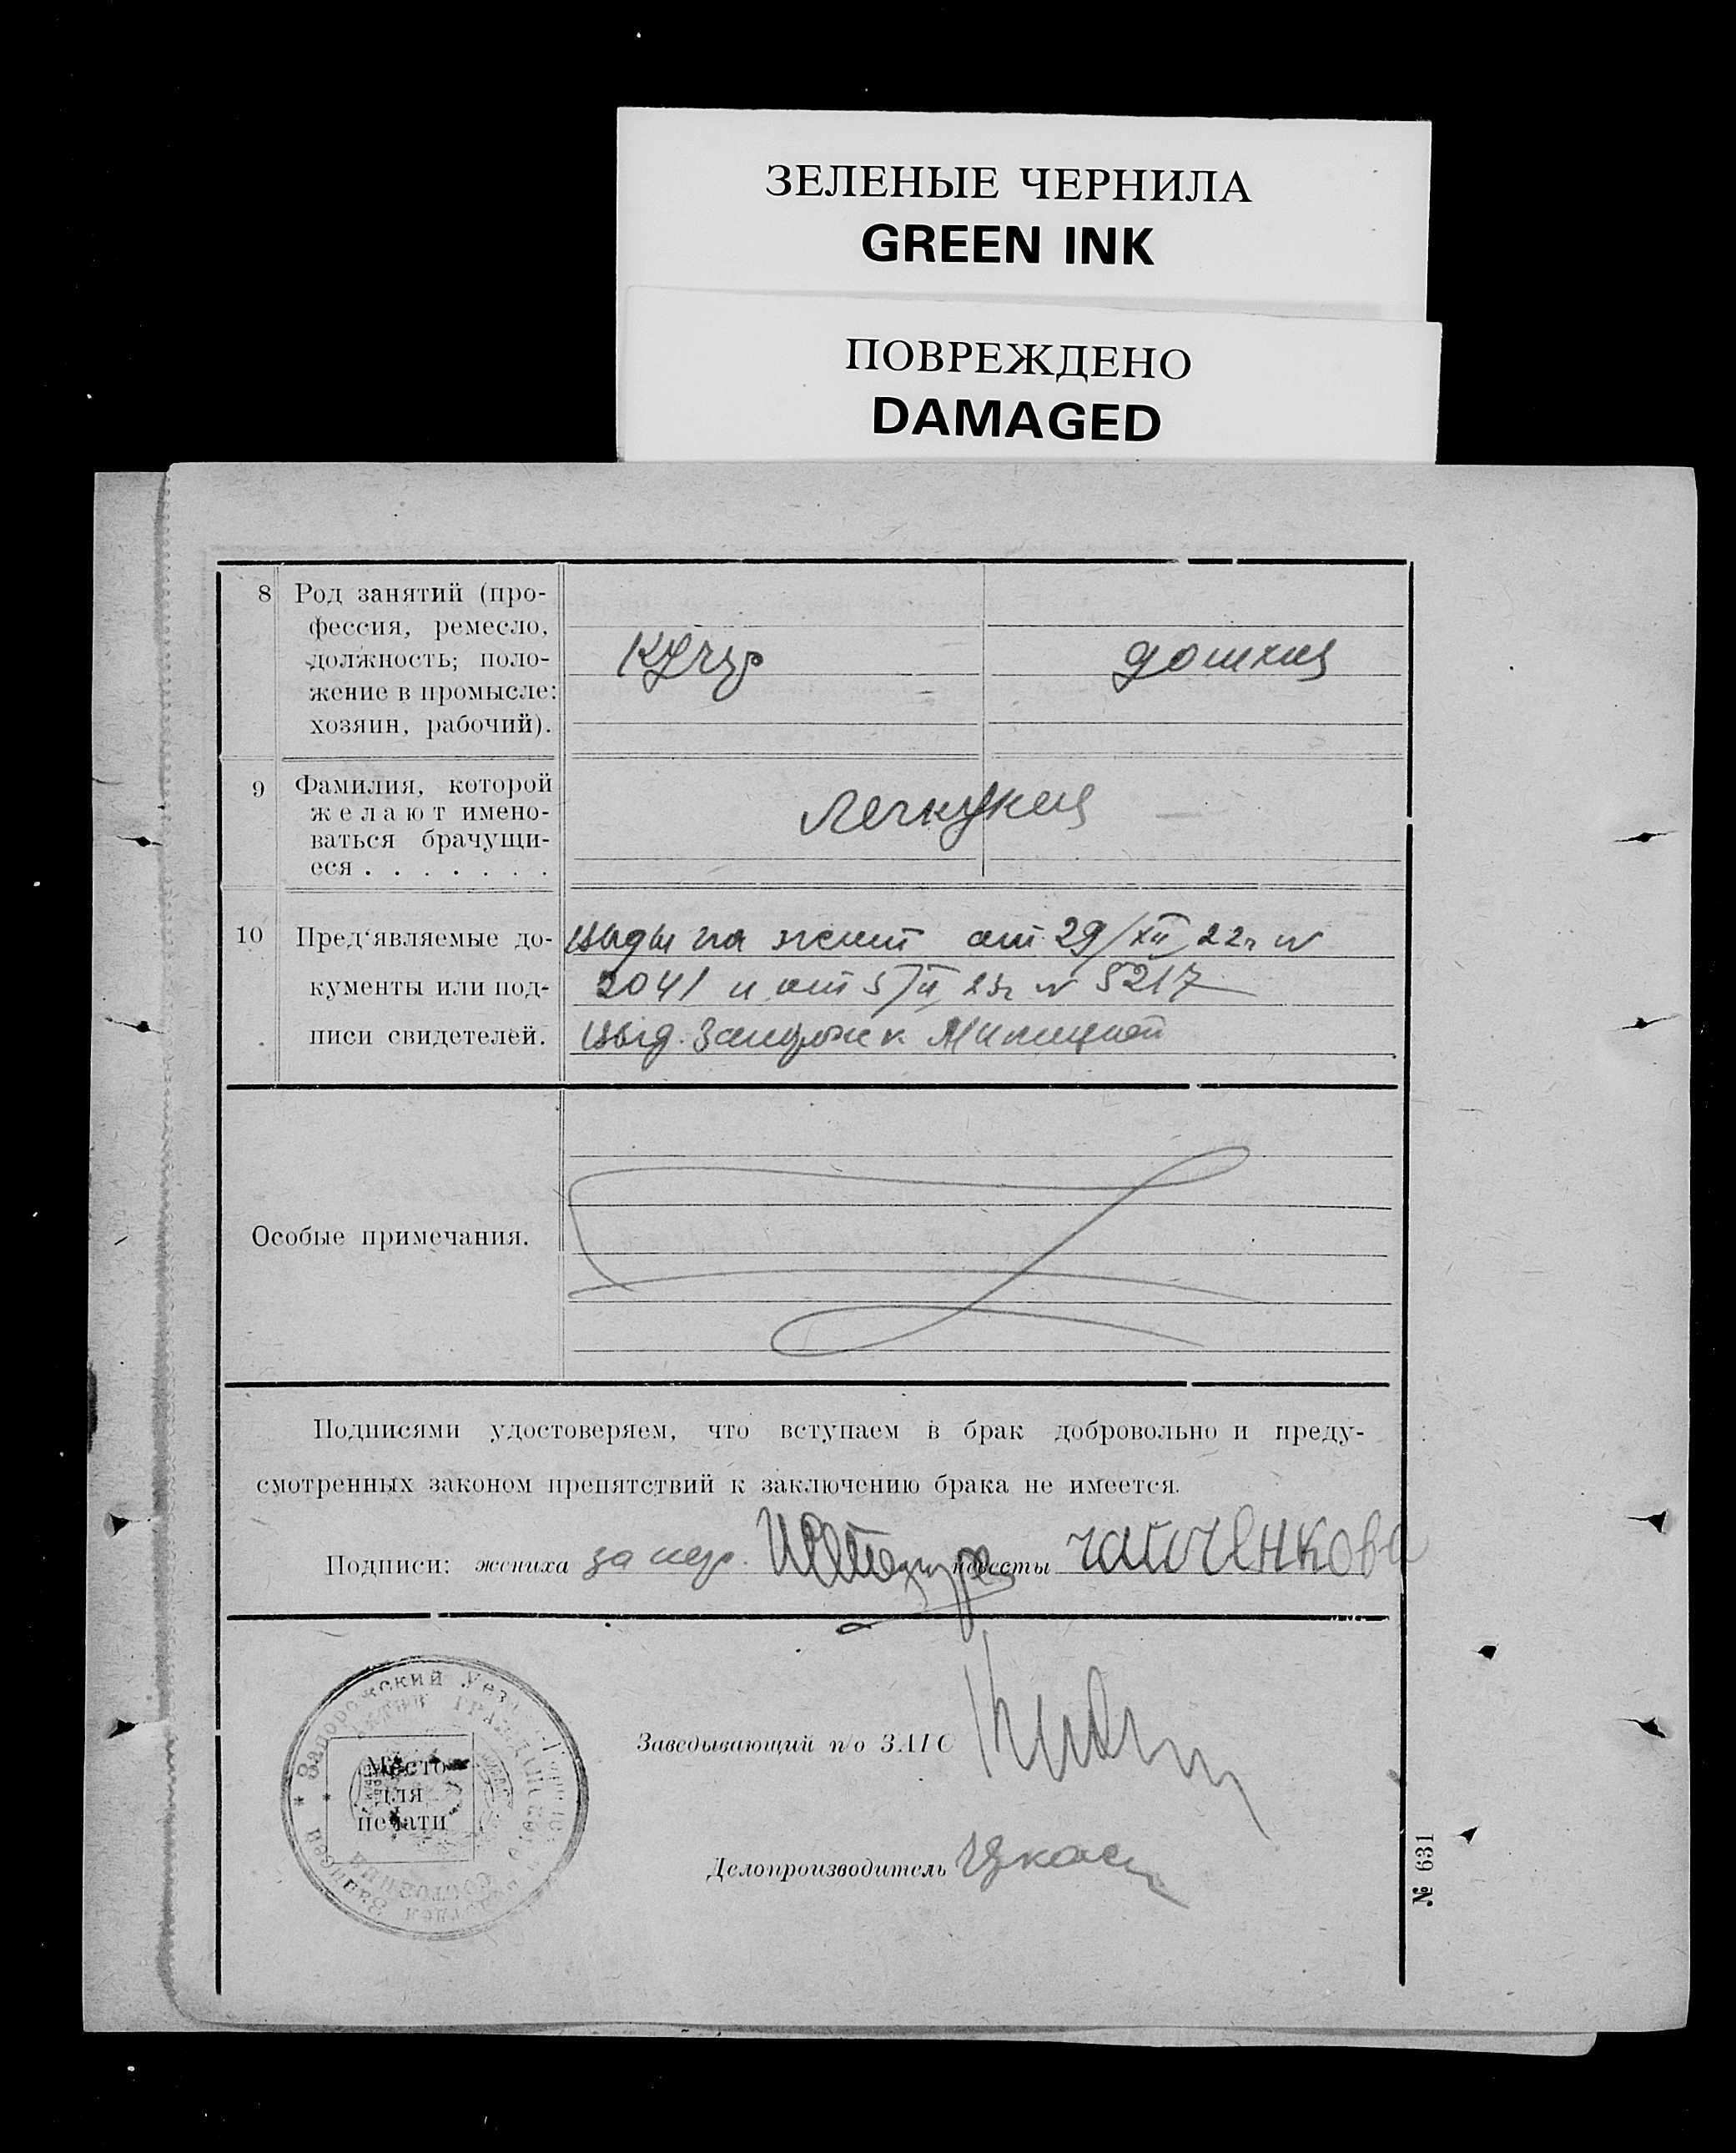 ЗЕЛЕНЫЕ ЧЕРНИЛА
GREEN INK
ПОВРЕЖДЕНО
DAMAGED
8 Род занятий (про-
фессия, ремесло,
должность; поло-
жение в промысле:
хозяин, рабочий).
кучер
домхоз
9 Фамилия, которой
желают имено-
ваться брачущи-
еся . . . . . . .
10 Пред'являемые до-
кументы или под-
писи свидетелей.
виды на жит от 29/XII 22г №
2041 и от 5/II 23г № 5217
выд. Запорожск. Милицией
Особые примечания.
Подписями удостоверяем, что вступаем в брак добровольно и преду-
смотренных законом препятствий к заключению брака не имеется.
Подписи: жениха за негр. невесты
Заведывающий п/о ЗАГС
Делопроизводитель
Запорожский Уезд
Место
для
печати
№ 631